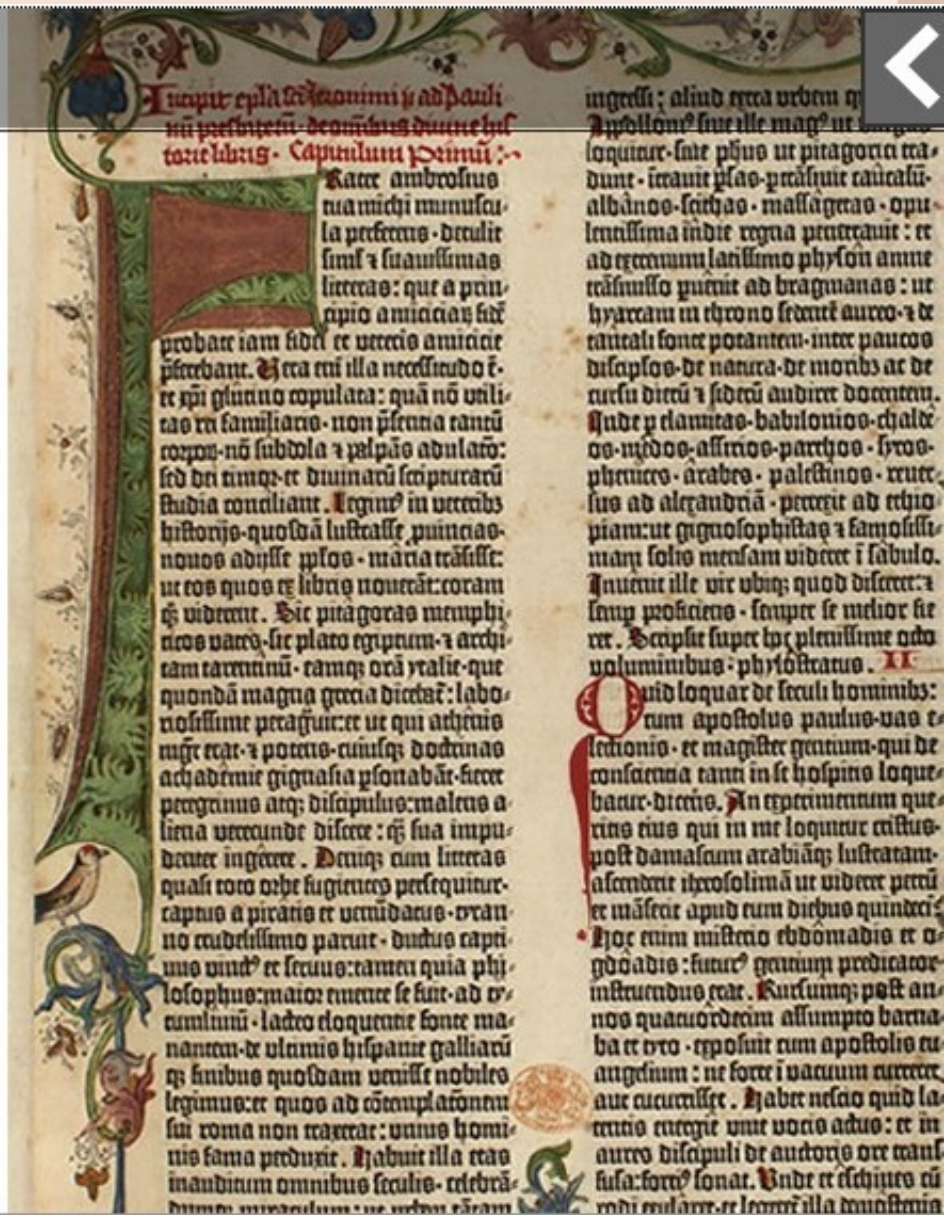 Incipit epla sancti Ieronimi ad Pauli-
nū presbiterū · de omnibus divine his
torie libris · Capitulum Primū :·
Frater ambrosius
tua michi munuscu-
la perferens · detulit
siml' ⁊ suavissimas
litteras : que a prin-
cipio amiciciaꝝ fidē
probate iam fidei et veteris amicicie
p̄ferebant. Vera eni illa necessitudo ē·
et xp̄i glutino copulata : quā nō utili-
tas rei familiaris · non p̄sentia tantū
corpoꝝ · nō subdola ⁊ palpās adulatō:
sed dei timor et divinarū scripturarū
studia conciliant . Legimꝰ in veteribꝫ
historijs · quosdā lustrasse ꝓvincias·
novos adijsse pplos · maria trāsisse:
ut eos quos ex libris noverāt: coram
qꝫ viderent . Sic pitagoras memphi-
ticos vates · sic plato egiptum · ⁊ archi-
tam tarentinū · eamqꝫ orā ytalie · que
quondā magna grecia dicebaī : labo-
riosissime peragravit: et ut qui athenis
mgr̄ erat · ⁊ potens · cuiusqꝫ doctrinas
achademie gignasia ꝑsonabāt · fieret
peregrinus atqꝫ discipulus: malens a-
liena verecunde discere : qꝫ sua impu-
denter ingerere . Deniqꝫ cum litteras
quasi toto orbe fugientes persequitur·
captus a piratis et venūdatus · tyran-
no crudelissimo paruit · ductus capti-
vus vinctꝰ et servus: tamen quia phi-
losophus: maior emente se fuit · ad ty-
tumlivū · lacteo eloquentie fonte ma-
nantem · de ultimis hispanie galliarū
qꝫ finibus quosdam venisse nobiles
legimus: et quos ad cōtemplatōnem
sui roma non traxerat : unius homi-
nis fama perduxit . Habuit illa etas
inauditum omnibus seculis · celebrā-
dumqꝫ miraculum : ut urbem tātam
ingressi : aliud extra urbem
Apollonꝰ sive ille magꝰ ut vulgus
loquitur · sive phūs ut pitagorici tra-
dunt · ītravit ꝑsas · ꝑtrāsivit caucasū·
albānos · scithas · massagetas · opu
lentissima indie regna penetravit : et
ad extremum latissimo physon amne
trāsmisso ꝑvenit ad bragmanas : ut
hyarcam in throno sedentē aureo · ⁊ de
tantali fonte potantem · inter paucos
discip̄los · de natura · de moribꝫ ac de
cursu dierū ⁊ siderū audiret docentem.
Inde ꝑ elamitas · babilonios · chalde
os · medos · assirios · parthos · syros·
phenices · arabes · palestinos · rever
sus ad alexandriā · perrexit ad ethio
piam: ut gignosophistas ⁊ famosissi-
mam solis mensam videret ī sabulo.
Invenit ille vir ubiqꝫ quod disceret: ⁊
semꝑ proficiens · semper se melior fie
ret . Scripsit super hoc plenissime octo
voluminibus : phylostratus . II
Quid loquar de seculi hominibꝫ:
cum apostolus paulus · vas e-
lectionis · et magister gentium · qui de
conscientia tanti in se hospitis loque-
batur · dicens. An experimentum que-
ritis eius qui in me loquitur cristus·
post damascum arabiāqꝫ lustratam·
ascenderit iherosolimā ut videret petrū
et māserit apud eum diebus quindecī
Hoc enim misterio ebdomadis et o-
gdoadis : futurꝰ gentium predicator·
instruendus erat . Rursumqꝫ post an-
nos quatuordecim assumpto barna-
ba et tyto · exposuit cum apostolis eu-
angelium : ne forte ī vacuum curreret
aut cucurrisset . Habet nescio quid la-
tentis energie vive vocis actus : et in
aures discipuli de auctoris ore trans
fusa: fortiꝰ sonat . Unde et eschines cū
rodi exularet · et legeret illa demostenis